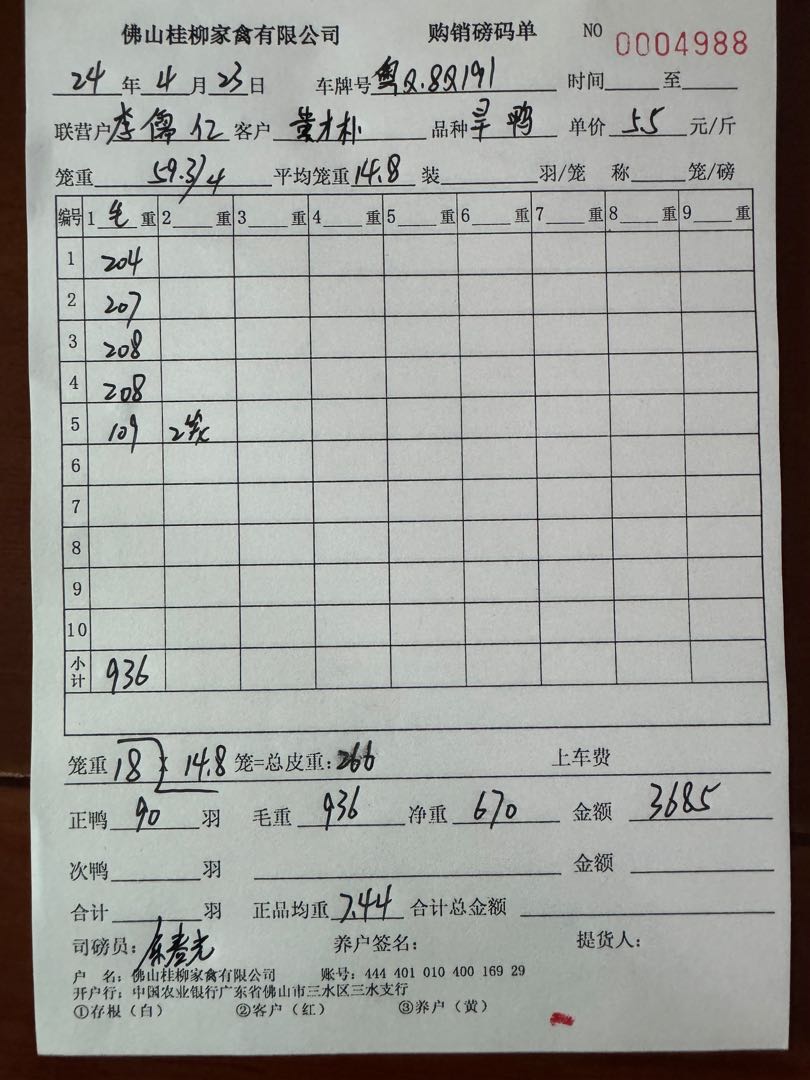 佛山桂柳家禽有限公司 购销磅码单 NO 0004988
24 年 4 月 23 日 车牌号 粤Q.8Q191 时间 至
联营户 李儒仁 客户 黄才朴 品种 旱鸭 单价 5.5 元/斤
笼重 59.3/4 平均笼重 14.8 装 羽/笼 称 笼/磅
编号 1 毛 重 2 重 3 重 4 重 5 重 6 重 7 重 8 重 9 重
1 204
2 207
3 208
4 208
5 109 2笼
6
7
8
9
10
小计 936
笼重 18 × 14.8 笼=总皮重: 266 上车费
正鸭 90 羽 毛重 936 净重 670 金额 3685
次鸭 羽 金额
合计 羽 正品均重 7.44 合计总金额
司磅员: 养户签名: 提货人:
户 名: 佛山桂柳家禽有限公司 账号: 444 401 010 400 169 29
开户行: 中国农业银行广东省佛山市三水区三水支行
①存根（白） ②客户（红） ③养户（黄）